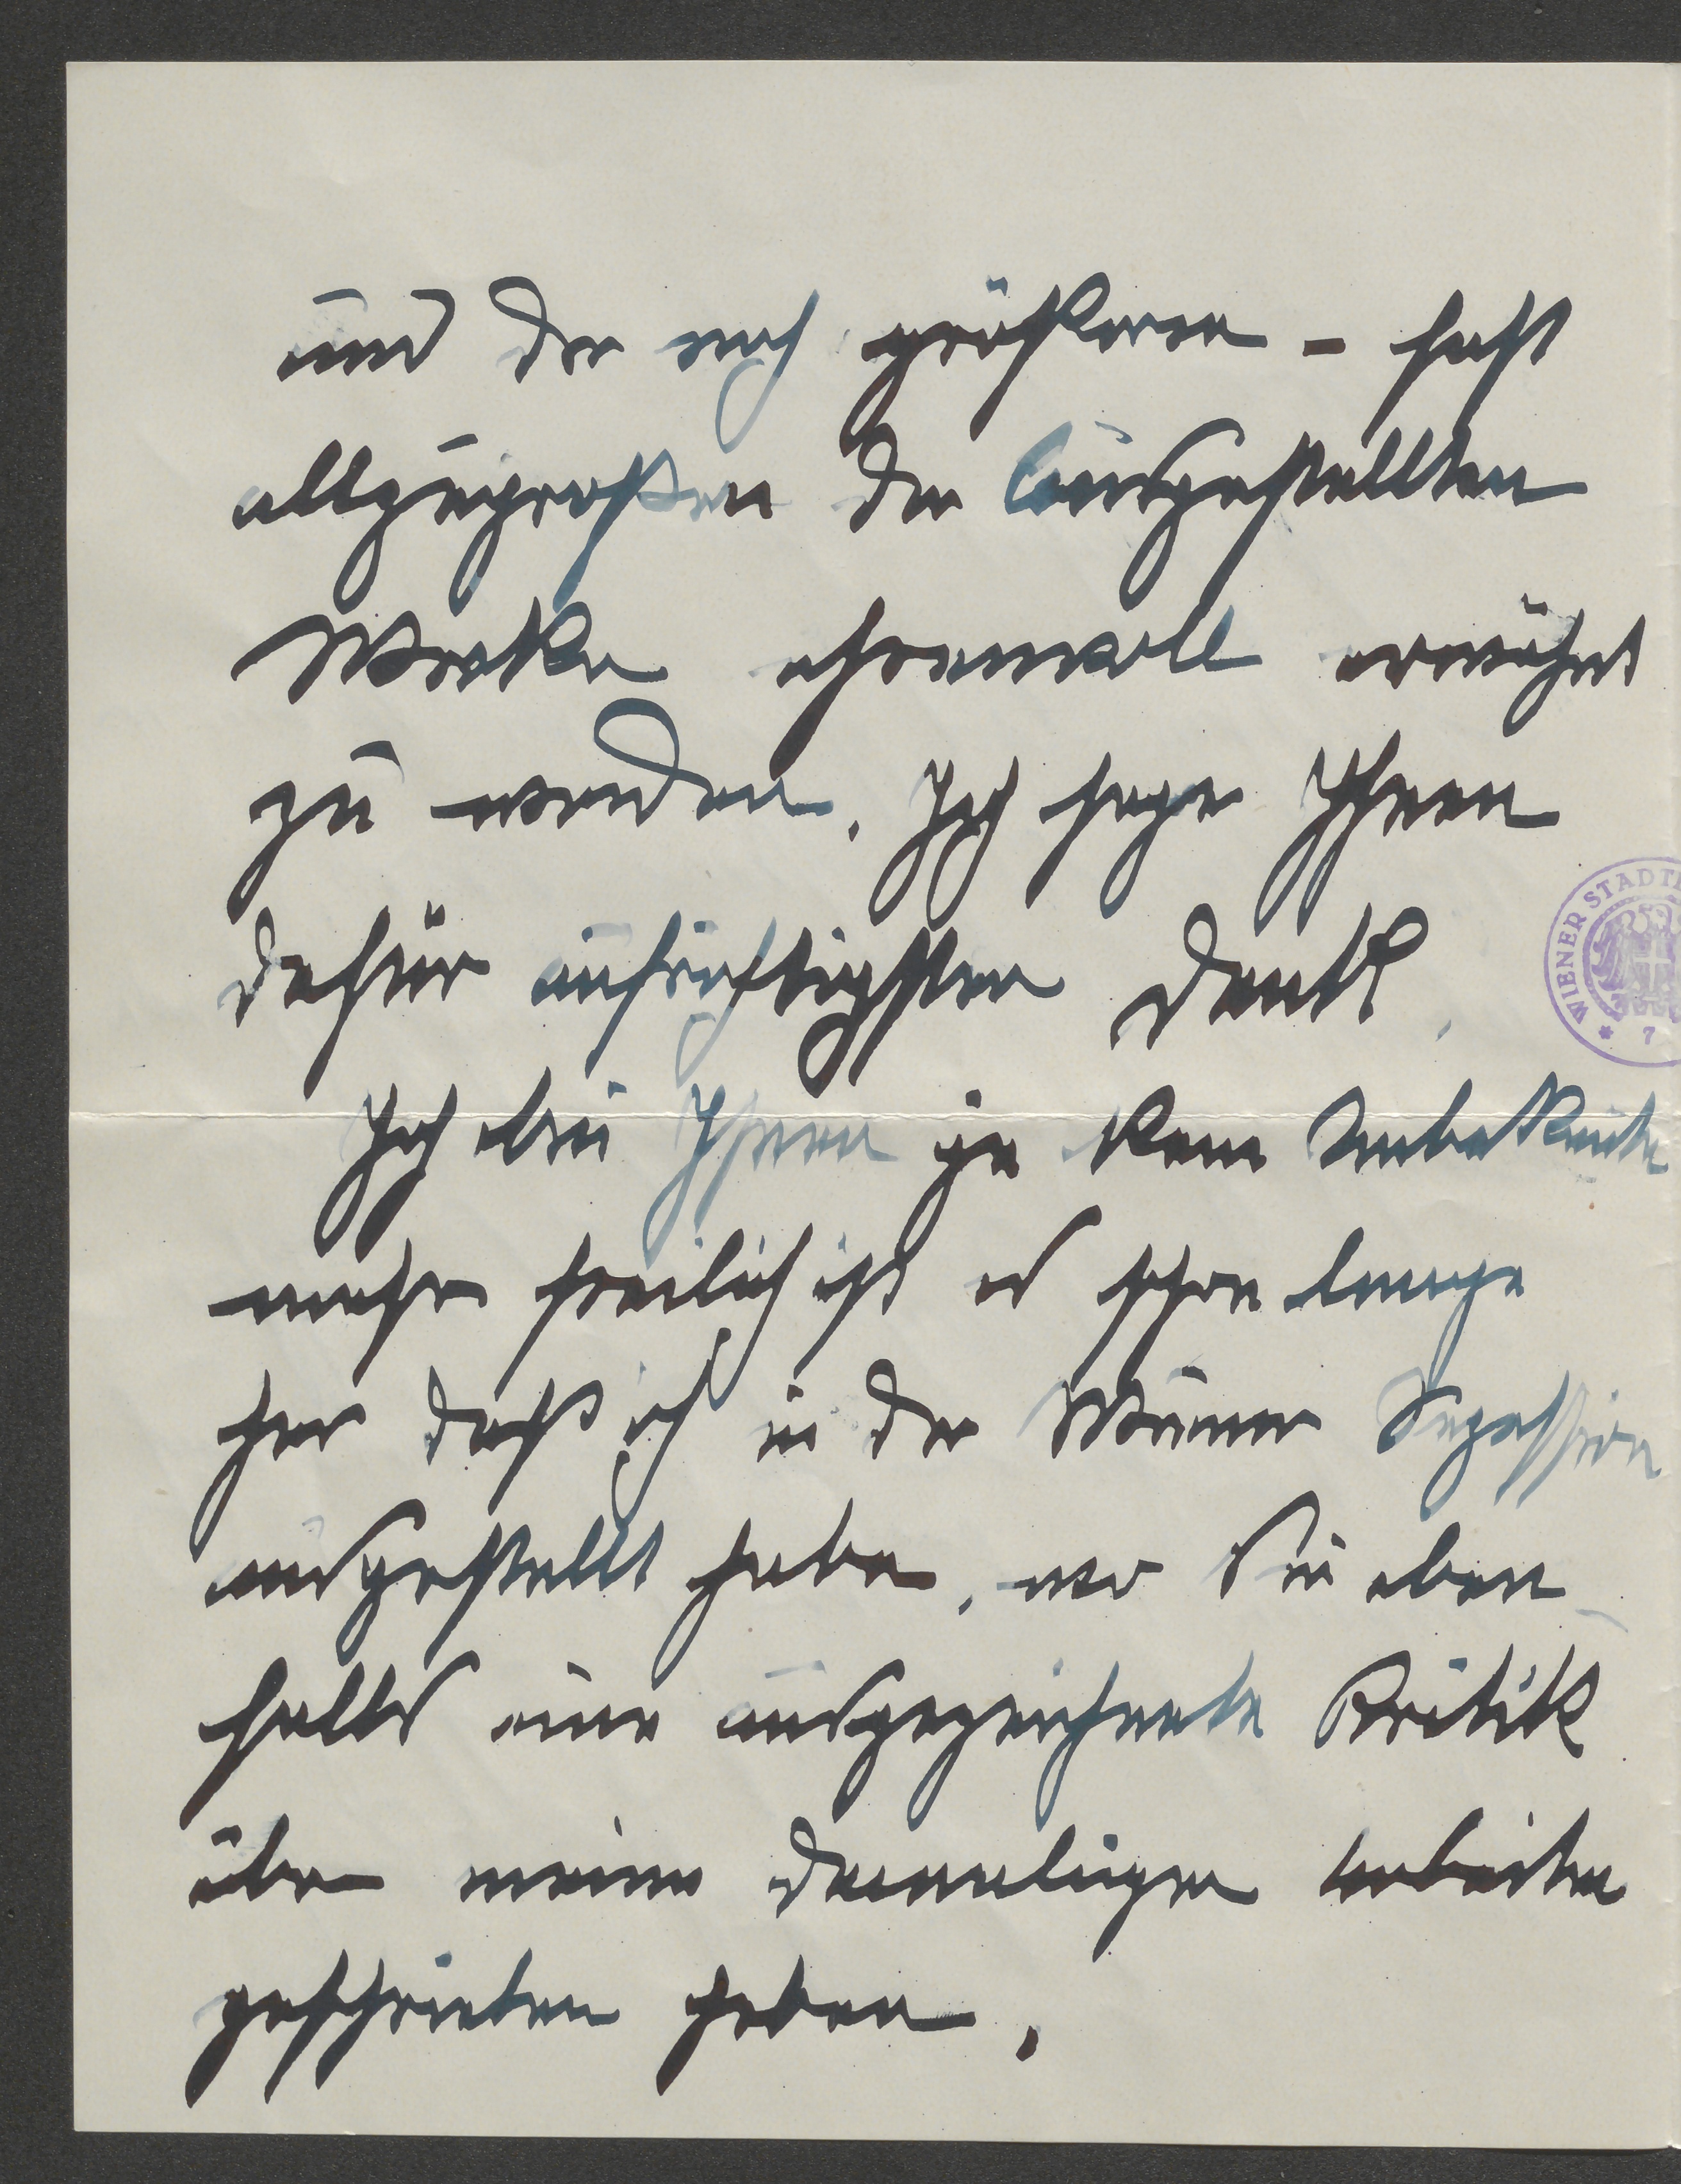 und der noch größeren – fast
allzugroßen der ausgestellten
Werke ehrenvoll erwähnt
zu werden. Ich sage Ihnen
dafür aufrichtigsten Dank.
Ich bin Ihnen ja kein Unbekannter
mehr freilich ist es schon lange
her daß ich in der Wiener Sezession
ausgestellt habe, wo Sie eben
falls eine ausgezeichnete Kritik
über meine damaligen Arbeiten
geschrieben haben.
WIENER STADT
* 7